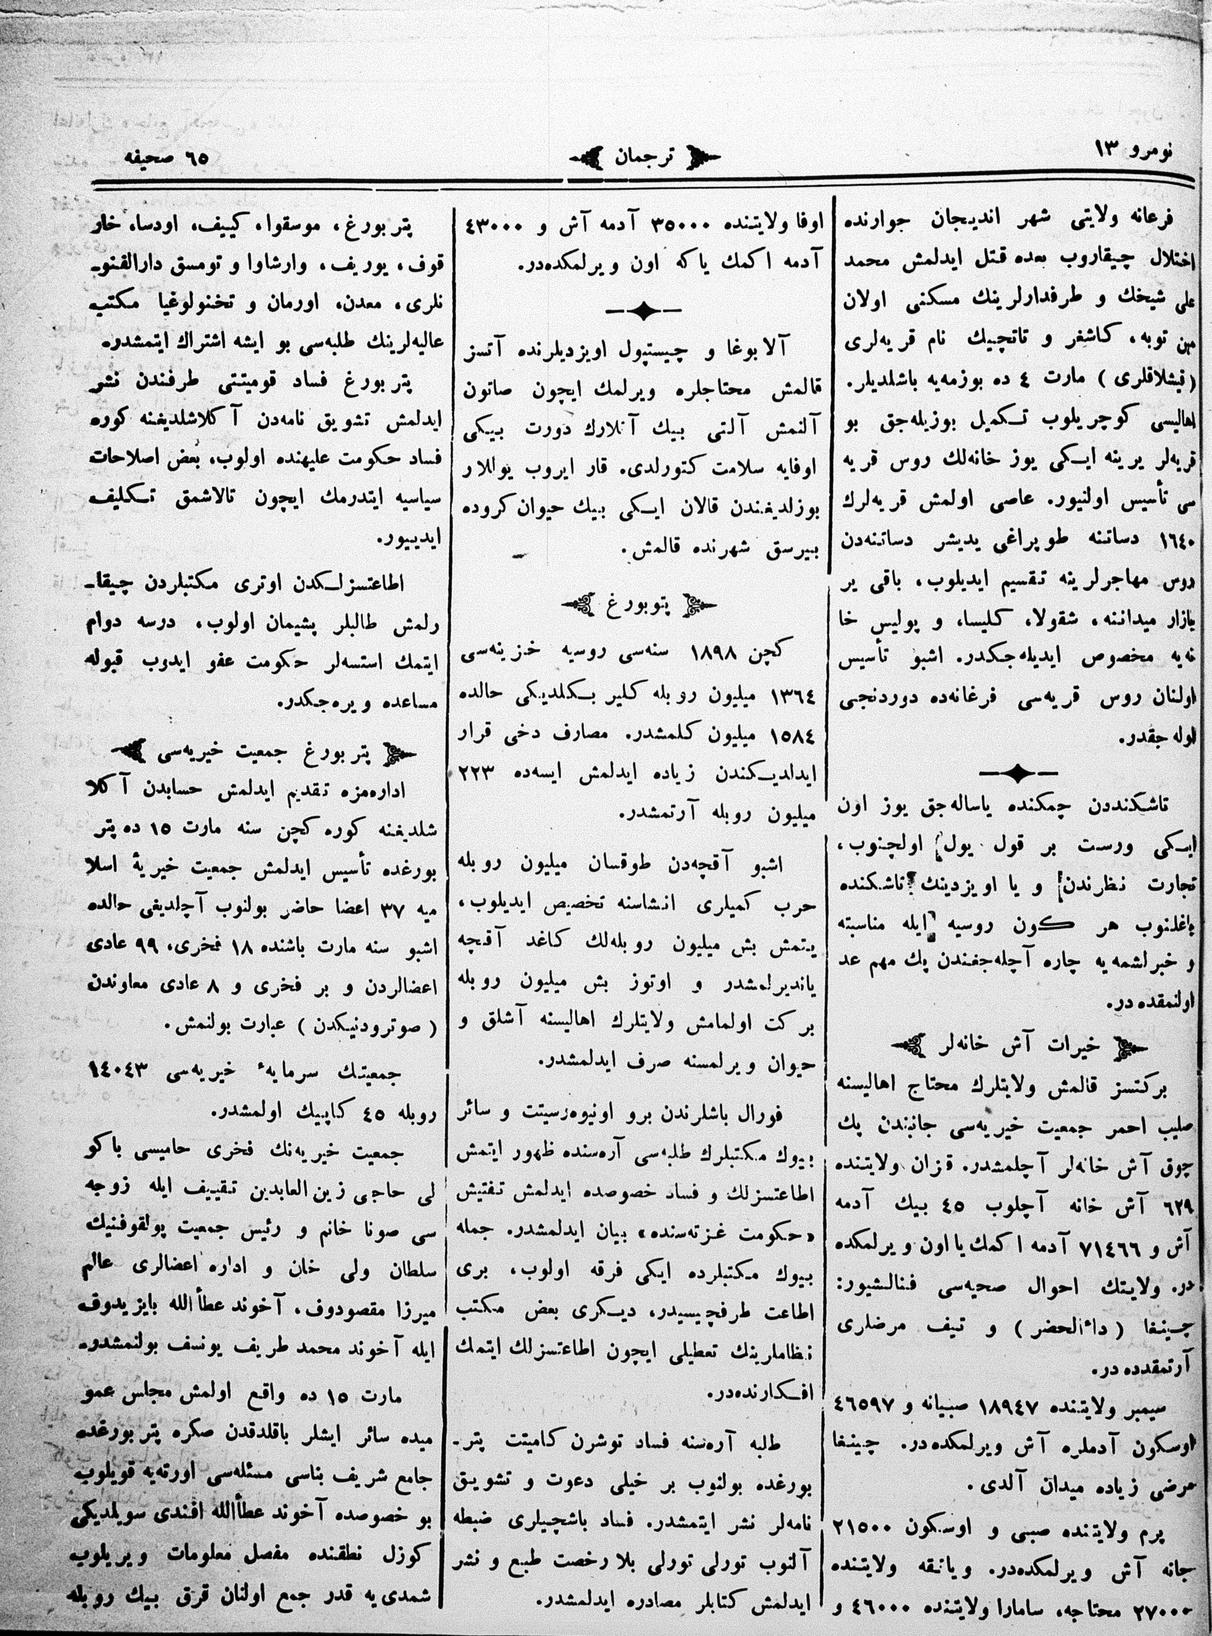 نومرو ١٣
ترجمان
٦٥ صحیفه
فرغانه ولایتی شهر اندیجان جوارنده
اختلال چیقاروب بعده قتل ایدلمش محمد
علی شیخك و طرفدارلرینك مسکنی اولان
مین توبه، کاشغر و تاتچیك نام قریه‌لری
(قیشلاقلری) مارت ٤ ده بوزمه‌یه باشلدیلر.
اهالیسی کوچریلوب تکمیل بوزیله‌جق بو
قریه‌لر یرینه ایکی یوز خانه‌لك روس قریه
سی تأسیس اولنیور. عاصی اولمش قریه‌لرك
١٦٤٠ دساتنه طوپراغی یدیشر دساتنه‌دن
روس مهاجرلرینه تقسیم ایدیلوب، باقی یر
یازار میداننه، شقولا، کلیسا، و پولیس خا
نه‌یه مخصوص ایدیله‌جکدر. اشبو تأسیس
اولنان روس قریه‌سی فرغانه‌ده دوردنجی
اوله جقدر.
تاشکنددن چمکنده یاساله‌جق یوز اون
ایکی ورست بر قول یول اولچنوب،
تجارت نظرندن و یا اویزدینك تاشکنده
باغلنوب هر کون روسیه ایله مناسبته
و خبرلشمه‌یه چاره آچله‌جغندن پك مهم عد
اولنمقده در.
خیرات آش خانه‌لر
برکتسز قالمش ولایتلرك محتاج اهالیسنه
صلیب احمر جمعیت خیریه‌سی جانبندن پك
چوق آش خانه‌لر آچلمشدر. قزان ولایتنده
٦٢٩ آش خانه آچلوب ٤٥ بیك آدمه
آش و ٧١٤٦٦ آدمه اکمك یا اون ویرلمکده
در. ولایتك احوال صحیه‌سی فنالشیور:
چینغا (داءالحضر) و تیف مرضلری
آرتمقدده در.
سیمبر ولایتنده ١٨٩٤٧ صبیانه و ٤٦٥٩٧
اوسکون آدملره آش ویرلمکده‌در. چینغا
مرضی زیاده میدان آلدی.
پرم ولایتنده صبی و اوسکون ٢١٥٠٠
جانه آش ویرلمکده‌در. ویاتقه ولایتنده
٢٧٠٠٠ محتاجه، سامارا ولایتنده ٤٦٠٠٠ و
اوفا ولایتنده ٣٥٠٠٠ آدمه آش و ٤٣٠٠٠
آدمه اکمك یاکه اون ویرلمکده‌در.
آلابوغا و چیستپول اویزدیلرنده آتسز
قالمش محتاجلره ویرلمك ایچون صاتون
آلنمش آلتی بیك آتلارك دورت بیکی
اوفایه سلامت کتورلدی. قار ایروب یوللار
بوزلدیغندن قالان ایکی بیك حیوان کروده
بیرسق شهرنده قالمش.
پتوبورغ
کچن ١٨٩٨ سنه‌سی روسیه خزینه‌سی
١٣٦٤ میلیون روبله کلیر بکلدیکی حالده
١٥٨٤ میلیون کلمشدر. مصارف دخی قرار
ایدلدیکندن زیاده ایدلمش ایسه‌ده ٢٢٣
میلیون روبله آرتمشدر.
اشبو آقچه‌دن طوقسان میلیون روبله
حرب کمیلری انشاسنه تخصیص ایدیلوب،
یتمش بش میلیون روبله‌لك کاغد آقچه
یاندیرلمشدر و اوتوز بش میلیون روبله
برکت اولمامش ولایتلرك اهالیسنه آشلق و
حیوان ویرلمسنه صرف ایدلمشدر.
فورال باشلرندن برو اونیوه‌رسیتت و سائر
بیوك مکتبلرك طلبه‌سی آره‌سنده ظهور ایتمش
اطاعتسزلك و فساد خصوصده ایدلمش تفتیش
«حکومت غزته‌سنده» بیان ایدلمشدر. جمله
بیوك مکتبلرده ایکی فرقه اولوب، بری
اطاعت طرفچیسیدر، دیکری بعض مکتب
نظاملرینك تعطیلی ایچون اطاعتسزلك ایتمك
افکارنده‌در.
طلبه آره‌سنه فساد توشرن کامیتت پتر-
بورغده بولنوب بر خیلی دعوت و تشویق
نامه‌لر نشر ایتمشدر. فساد باشچیلری ضبطه
آلنوب تورلی تورلی بلا رخصت طبع و نشر
ایدلمش کتابلر مصادره ایدلمشدر.
پتربورغ، موسقوا، کییف، اودسا، خار
قوف، یوریف، وارشاوا و تومسق دارالفنو-
نلری، معدن، اورمان و تخنولوغیا مکتب
عالیه‌لرینك طلبه‌سی بو ایشه اشتراك ایتمشدر.
پتربورغ فساد قومیتتی طرفندن نشر
ایدلمش تشویق نامه‌دن آکلاشلدیغنه کوره
فساد حکومت علیهنده اولوب، بعض اصلاحات
سیاسیه ایتدرمك ایچون تالاشمق تکلیف
ایدییور.
اطاعتسزلکدن اوتری مکتبلردن چیقا-
رلمش طالبلر پشیمان اولوب، درسه دوام
ایتمك استسه‌لر حکومت عفو ایدوب قبوله
مساعده ویره‌جکدر.
پتربورغ جمعیت خیریه‌سی
اداره‌مزه تقدیم ایدلمش حسابدن آکلا
شلدیغنه کوره کچن سنه مارت ١٥ ده پتر
بورغده تأسیس ایدلمش جمعیت خیریهٔ اسلا
میه ٣٧ اعضا حاضر بولنوب آچلدیغی حالده
اشبو سنه مارت باشنده ١٨ فخری، ٩٩ عادی
اعضالردن و بر فخری و ٨ عادی معاوندن
(صوترودنیکدن) عبارت بولنمش.
جمعیتك سرمایهٔ خیریه‌سی ١٤٠٤٣
روبله ٤٥ کاپیك اولمشدر.
جمعیت خیریه‌نك فخری حامیسی باکو
لی حاجی زین العابدین تقییف ایله زوجه
سی صونا خانم و رئیس جمعیت پولقوفنیك
سلطان ولی خان و اداره اعضالری عالم
میرزا مقصودوف، آخوند عطأالله بایزیدوف
ایله آخوند محمد ظریف یونسف بولنمشدر.
مارت ١٥ ده واقع اولمش مجلس عمو
میده سائر ایشلر باقلدقدن صکره پتربورغده
جامع شریف بناسی مسئله‌سی اورته‌یه قویلوب
بو خصوصده آخوند عطأالله افندی سویلدیکی
کوزل نطقنده مفصل معلومات ویریلوب
شمدی‌یه قدر جمع اولنان قرق بیك روبله